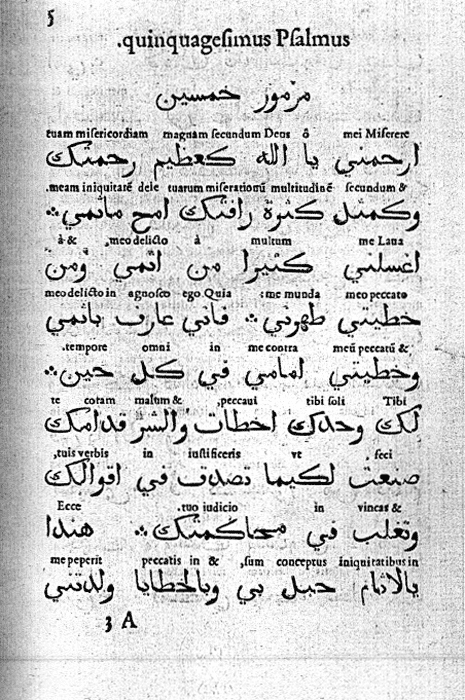 5
.quinquagesimus Psalmus
مزمور خمسين
tuam misericordiam magnam secundum Deus ô mei Miserere
ارحمني يا الله كعظيم رحمتك
.meam iniquitatē dele tuarum miserationū multitudinē secundum &
وكمثل كثرة رافتك امح ماثمي
à & ,meo delicto à multum me Laua
اغسلني كثيرا من اثمي ومن
meo delicto in agnosco ego Quia :me munda meo peccato
خطيتي طهرني فاني عارف باثمي
.tempore omni in me contra meū peccatū &
وخطيتي امامي في كل حين
te coram malum & ,peccaui tibi soli Tibi
لك وحدك اخطات والشر قدامك
,tuis verbis in iustificeris vt feci
صنعت لكيما تصدق في اقوالك
Ecce .tuo iudicio in vincas &
وتغلب في محاكمتك هذا
me peperit peccatis in & ,sum conceptus iniquitatibus in
بالاثام حبل بي وبالخطايا ولدتني
3 A